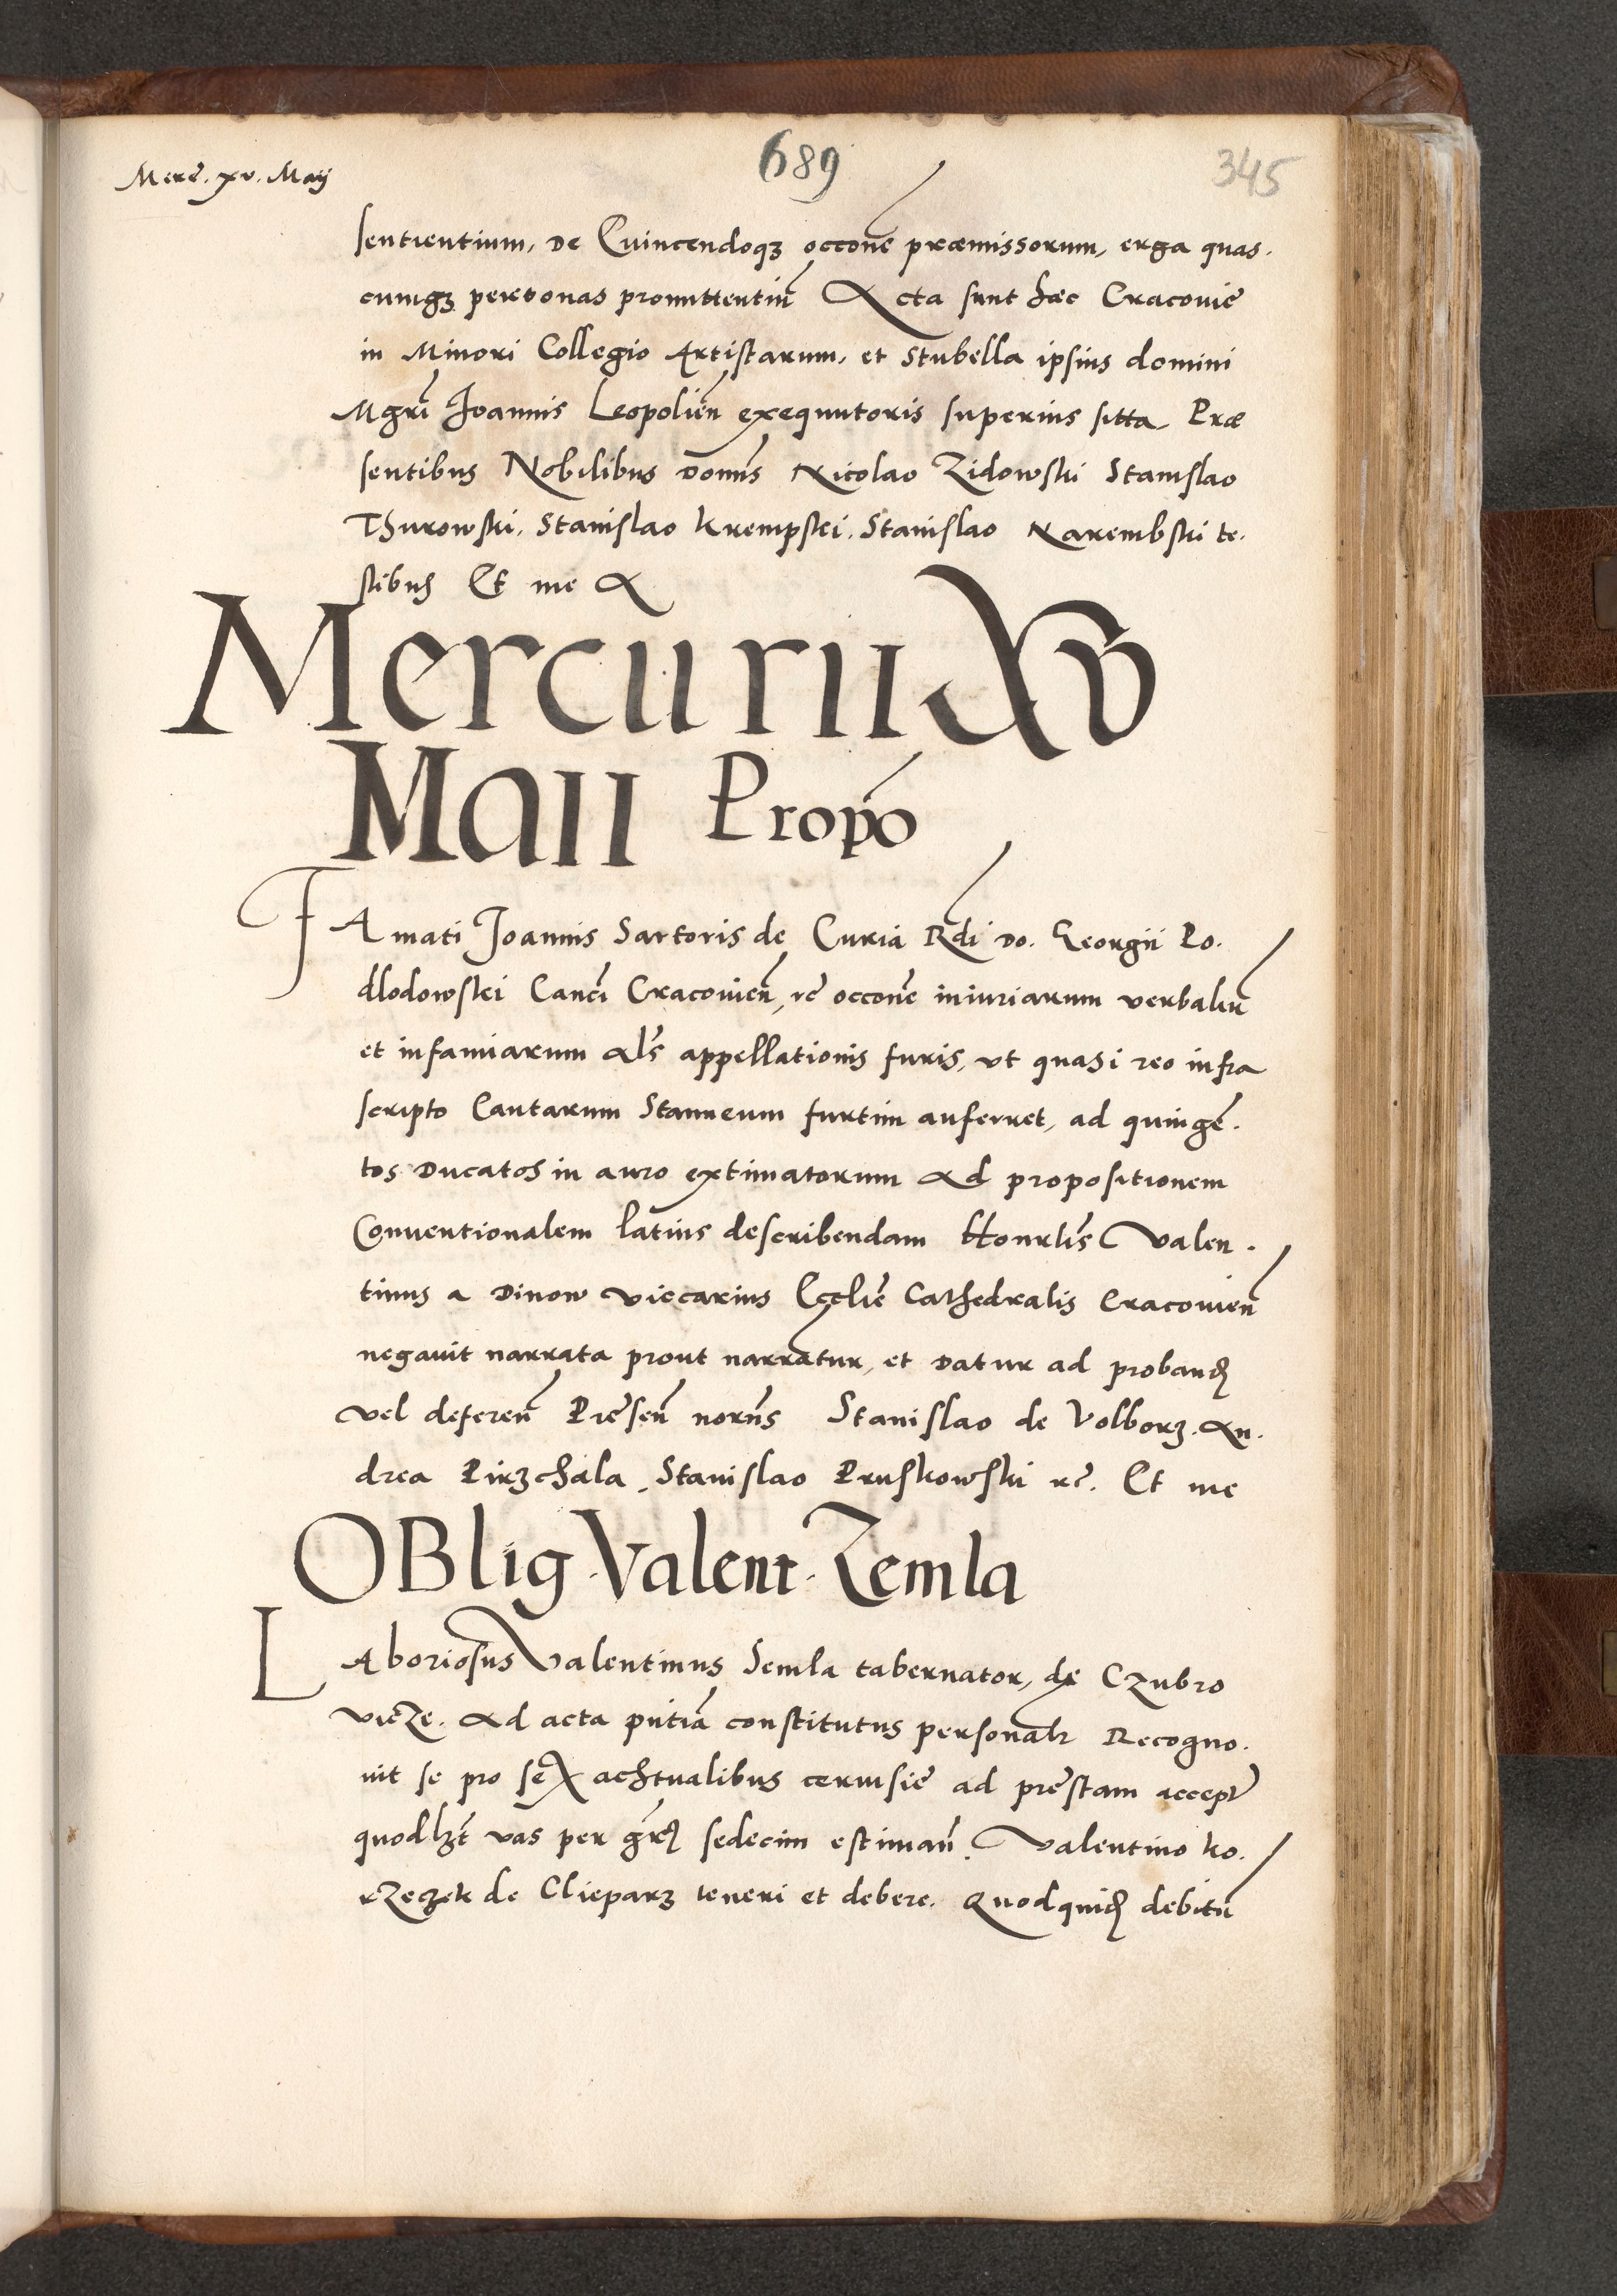 689
345
Mercē. xv. Maij
sentientium, de Evincendoqȝ occone præmissorum, erga quas.
cunqȝ personas promittentiū Acta sunt hæc Cracoviē
in Minori Collegio Artistarum, et Stubella ipsius domini
Mgrī Joannis Leopolień exequutoris superius sitta Præ
sentibus Nobilibus domīs Nicolao Zidowski Stanislao
Thurowski. Stanislao Krempski. Stanislao Narembski te.
stibus Et me
Mercurii XV
Maii Propō
FAmati Joannis Sartoris de Curia Rdi do. Georgii Po.
dlodowski Canci Cracovień, rc occone iniuriarum verbaliū
et infamiarum als appellationis furis, ut quasi reo infra
scripto Cantarum Stanneum furtim auferret, ad quingē.
tos Ducatos in auro extimatorum Ad propositionem
Conventionalem latius describendam Honrlis Valen.
tinus a Dinow viccarius Ecclię Cathedralis Cracovień
negavit narrata prout narratur, et datur ad proband
vel deferen Presen norns Stanislao de Volborȝ. An.
drea Pirȝchala, Stanislao Pruskowski rc. Et me
OBlig. Valent. Zemla
LAboriosus Valentinus Semla tabernator, de Czubro
vicze. Ad acta pntia constitutus personalr Recogno.
vit se pro sex achtualibus cervisie ad prestam accepr
quodlȝt vas per grs sedecim estiman. Valentino Ko.
rzeczek de Clieparȝ teneri et debere. Quodquid debitū